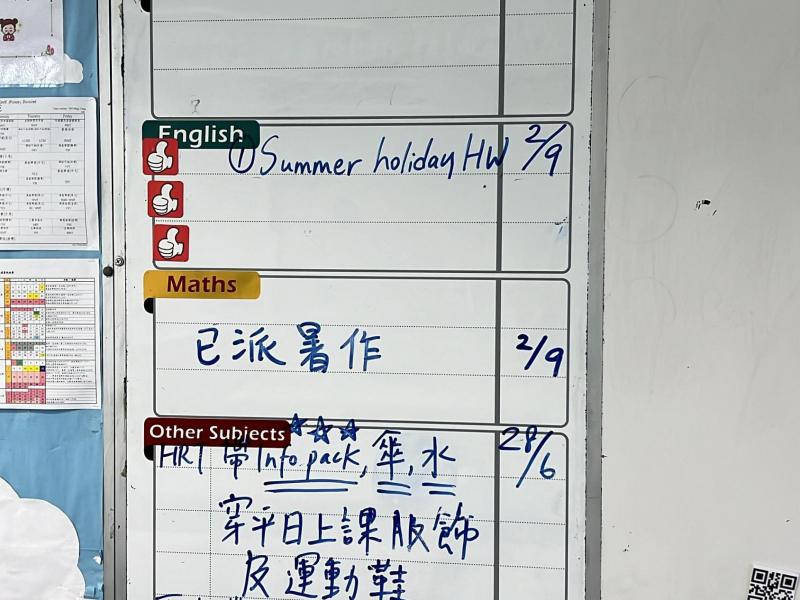 English
① Summer holiday HW 2/9
Maths
已派暑作 2/9
Other Subjects
HRT 帶 Info pack, 傘, 水 28/6
穿平日上課服飾
及運動鞋